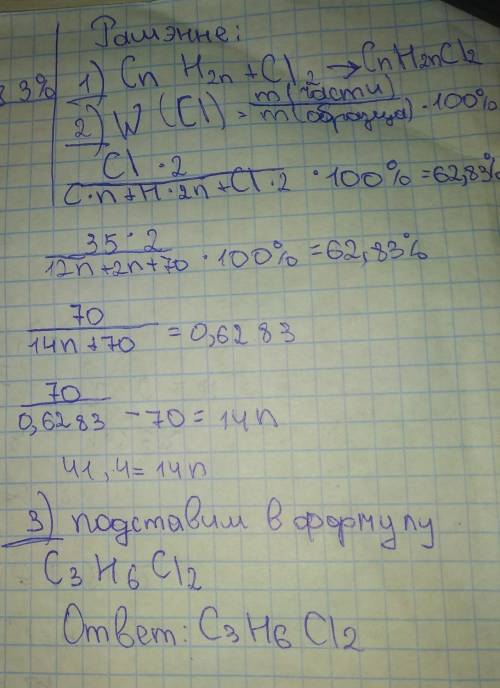 Рашэнне:
3 3%
1) Cn H2n + Cl2 → CnH2nCl2
2) W (Cl) = m(части) / m(образца) · 100%
Cl · 2 / C·n+H·2n+Cl·2 · 100% = 62,83%
35 · 2 / 12n+2n+70 · 100% = 62,83%
70 / 14n+70 = 0,6283
70 / 0,6283 - 70 = 14n
41,4 = 14n
3) подставим в формулу
C3 H6 Cl2
Ответ: C3H6 Cl2